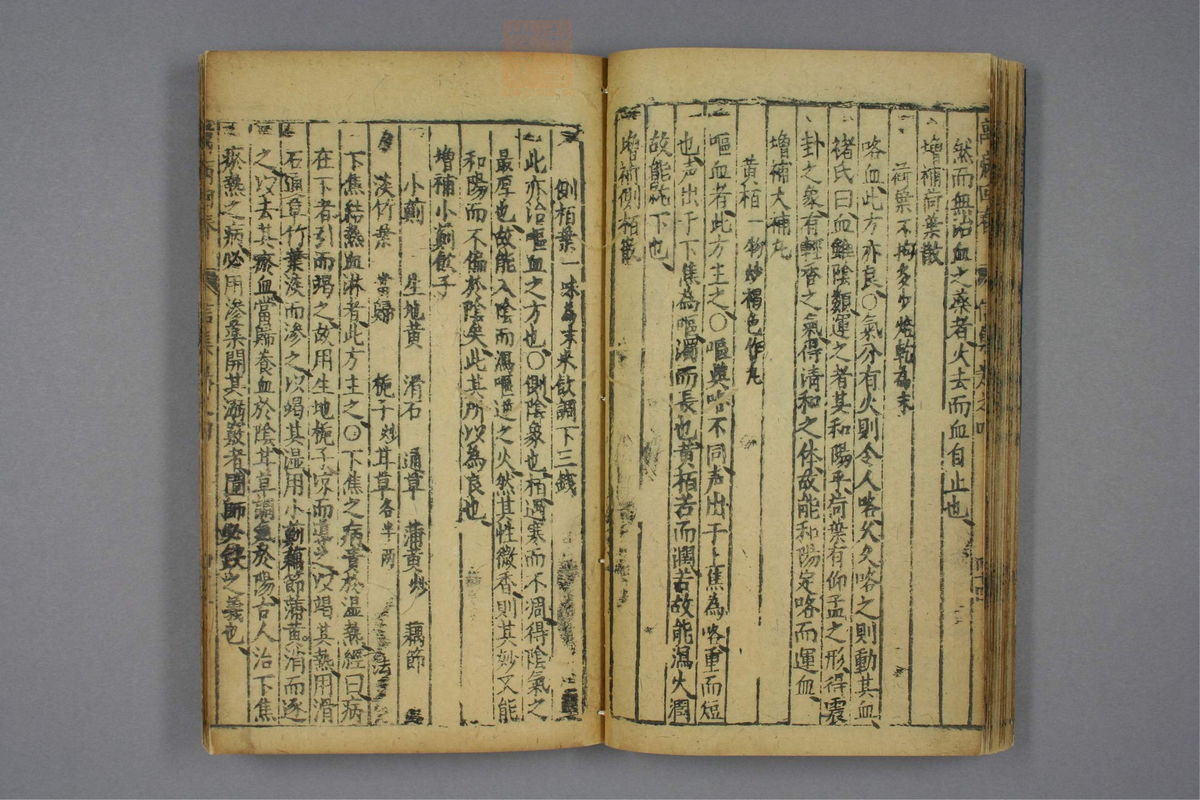 然而無治血之藥者火去而血自止也
增補荷葉散
荷葉不拘多少焙乾為末
咯血此方亦良○氣分有火則令人咯久久咯之則動其血
褚氏曰血雖陰類運之者其和陽乎荷葉有仰盂之形得震
卦之象有輕香之氣得清和之体故能和陽定咯而運血
增補大補丸
黃栢一物炒褐色作丸
嘔血者此方主之○嘔與咯不同声出于上焦為咯重而短
也声出于下焦為嘔濁而長也黃栢苦而濶苦故能瀉火濶
故能就下也
增補側栢散
側栢葉一味為末米飲調下三錢
此亦治嘔血之方也○側陰象也栢遇寒而不凋得陰氣之
最厚也故能入陰而瀉嘔逆之火然其性微香則其妙又能
和陽而不偏於陰矣此其所以為良也
增補小薊飲子
小薊 生地黃 滑石 通草 蒲黃炒 藕節
淡竹葉 當歸 梔子炒 甘草各半兩
下焦結熱血淋者此方主之○下焦之病責於湿熱經曰病
在下者引而竭之故用生地梔子凉而導之以竭其熱用滑
石通草竹葉淡而滲之以竭其湿用小薊藕節蒲黃消而逐
之以去其瘀血當歸養血於陰甘草調氣於陽古人治下焦
瘀熱之病必用滲藥開其溺竅者圍師必缺之義也